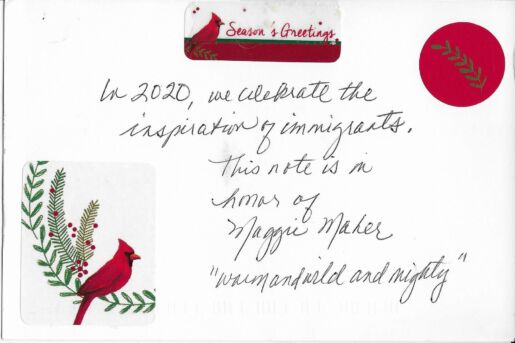 Season's Greetings
In 2020, we celebrate the
inspiration of immigrants.
This note is in
honor of
Maggie Maher
"warm and wild and mighty"